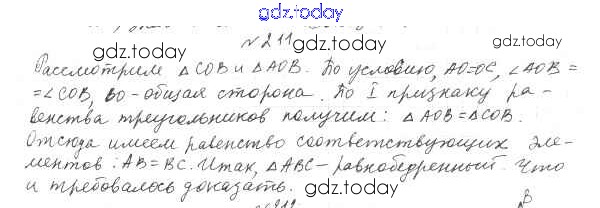 gdz.today
№ 211 gdz.today
Рассмотрим △COB и △AOB. По условию, AO=OC, ∠AOB =
=∠COB, BO-общая сторона. По I признаку ра-
венства треугольников получим: △AOB=△COB.
Отсюда имеем равенство соответствующих эле-
ментов: AB=BC. Итак, △ABC-равнобедренный. Что
и требовалось доказать.
gdz.today
gdz.today
gdz.today
gdz.today
gdz.today
B